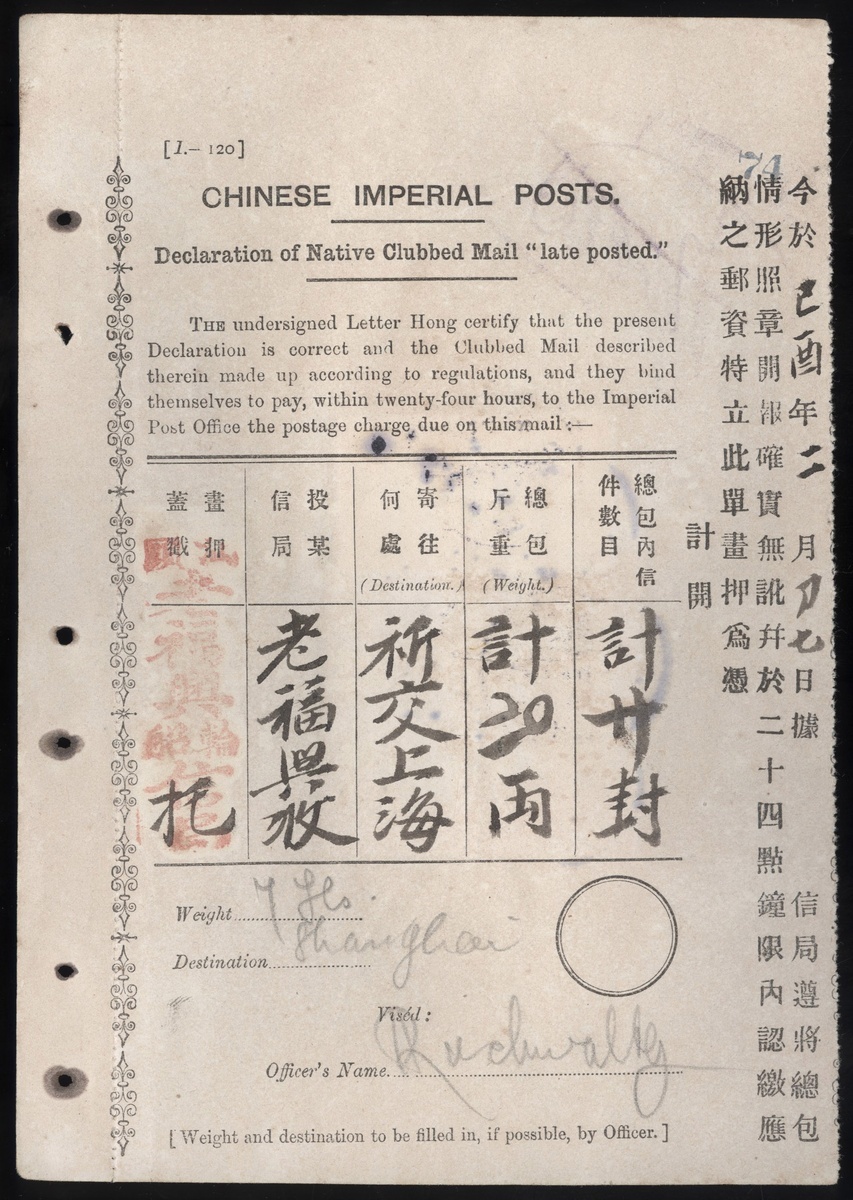 74
[1.— 120]
CHINESE IMPERIAL POSTS.
Declaration of Native Clubbed Mail "late posted."
THE undersigned Letter Hong certify that the present
Declaration is correct and the Clubbed Mail described
therein made up according to regulations, and they bind
themselves to pay, within twenty-four hours, to the Imperial
Post Office the postage charge due on this mail :—
今於己酉年二月初七日據 信局遵將總包
情形照章開報確實無訛幷於二十四點鐘限內認繳應
納之郵資特立此單畫押爲憑
計開
總包內信
件數目
計廿封
總包
斤重
(Weight.)
計20両
寄往
何處
(Destination.)
祈交上海
投某
信局
老福興
畫押
蓋戳
福興
輪船
托
Weight
Shanghai
Destination
Viséd :
Officer's Name
[ Weight and destination to be filled in, if possible, by Officer. ]